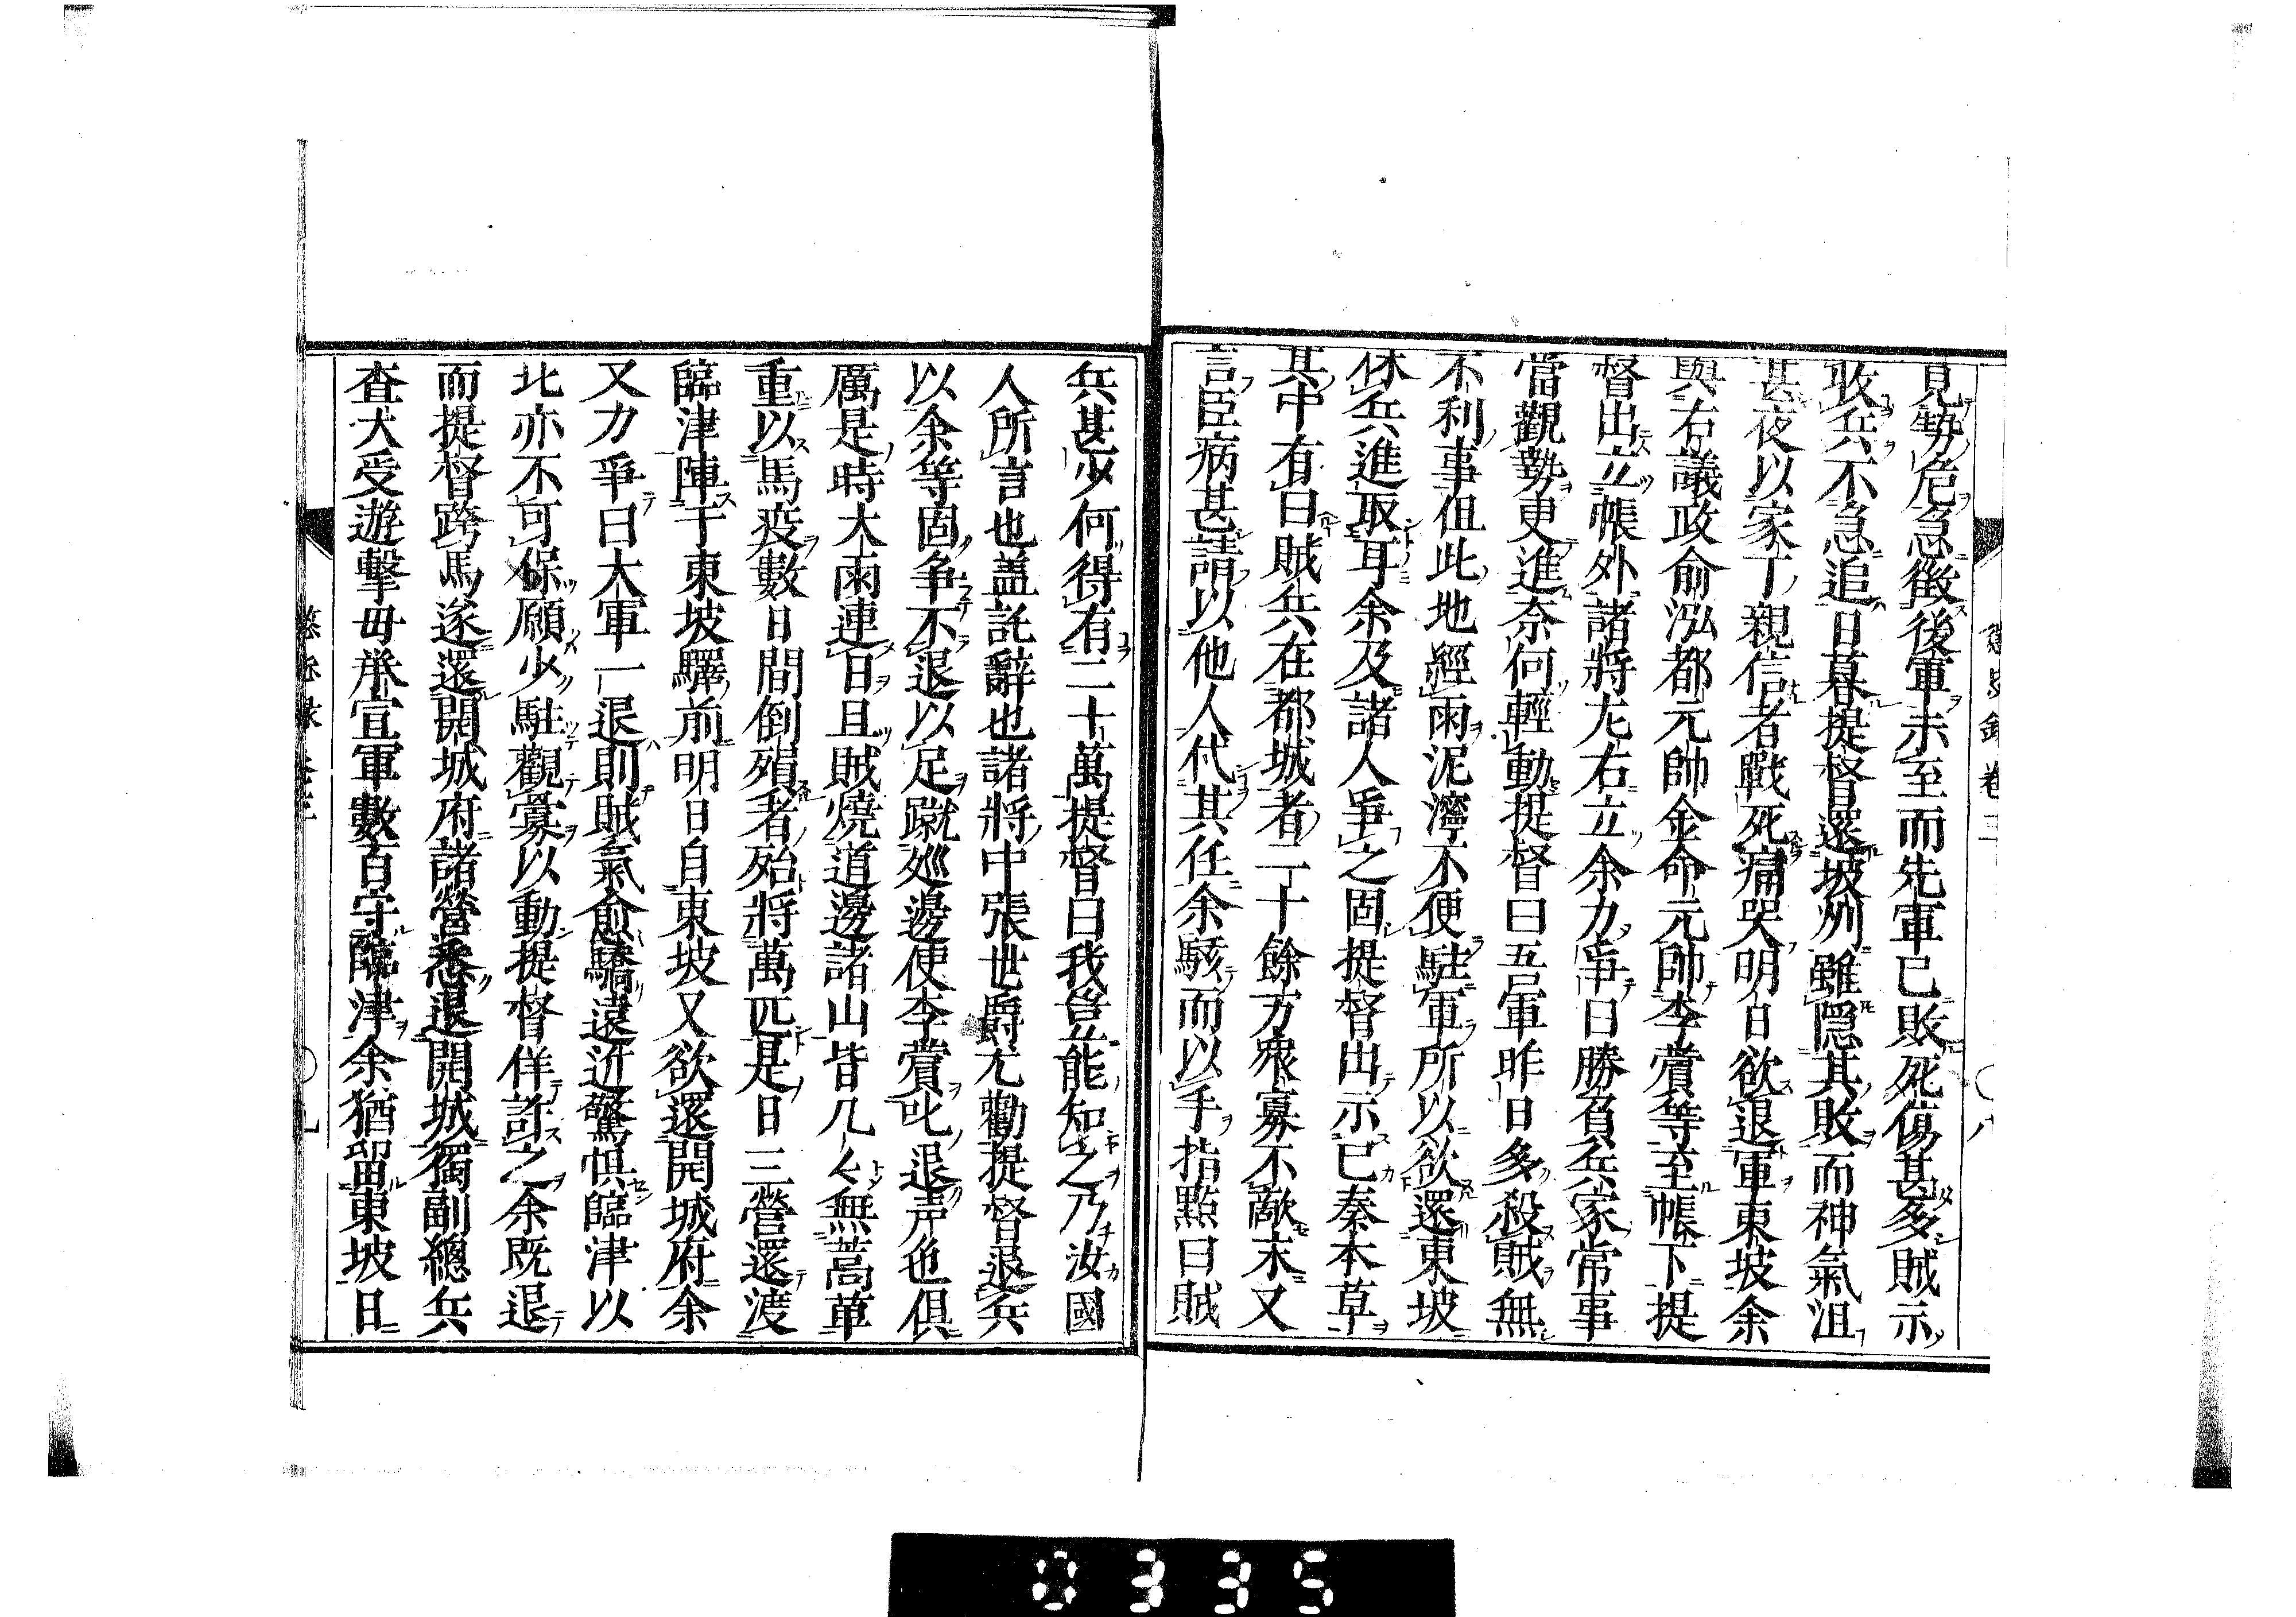 見勢危急徴後軍未至而先軍已敗死傷甚多賊示
收兵不急追日暮提督還坡州雖隠其敗而神氣沮
甚夜以家丁親信者戰死痛哭明日欲退軍東坡余
與右議政俞泓都元帥金命元帥李薲等至帳下提
督出立帳外諸將左右立余力爭曰勝負兵家常事
當觀勢更進奈何輕動提督曰吾軍昨日多殺賊無
不利事但此地經雨泥濘不便駐軍所以欲還東坡
休兵進取耳余及諸人爭之固提督出示已奏本草
其中有曰賊兵在都城者二十餘万衆寡不敵末又
言臣病甚請以他人代其任余駭而以手指點曰賊
兵甚少何得有二十萬提督曰我豈能知之乃汝國
人所言也盖託辭也諸將中張世爵尤勸提督退兵
以余等固争不退以足蹴廵邊使李薲叱退声色俱
厲是時大雨連日且賊燒道邊諸山皆兀〻無蒿草
重以馬疫數日間倒殞者殆將萬匹是日三營還渡
臨津陣于東坡驛前明日自東坡又欲還開城府余
又力爭曰大軍一退則賊氣愈驕遠近驚惧臨津以
北亦不可保願少駐觀寡以動提督佯許之余既退
而提督跨馬遂還開城府諸營悉退開城獨副總兵
查大受遊擊毋承宣軍數百守臨津余猶留東坡日
0335